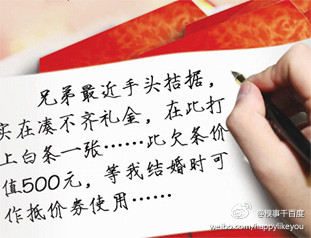 兄弟最近手头拮据，
实在凑不齐礼金，在此打
上白条一张……此欠条价
值500元，等我结婚时可
作抵价券使用……
@糗事千百度
weibo.com/happylikeyou